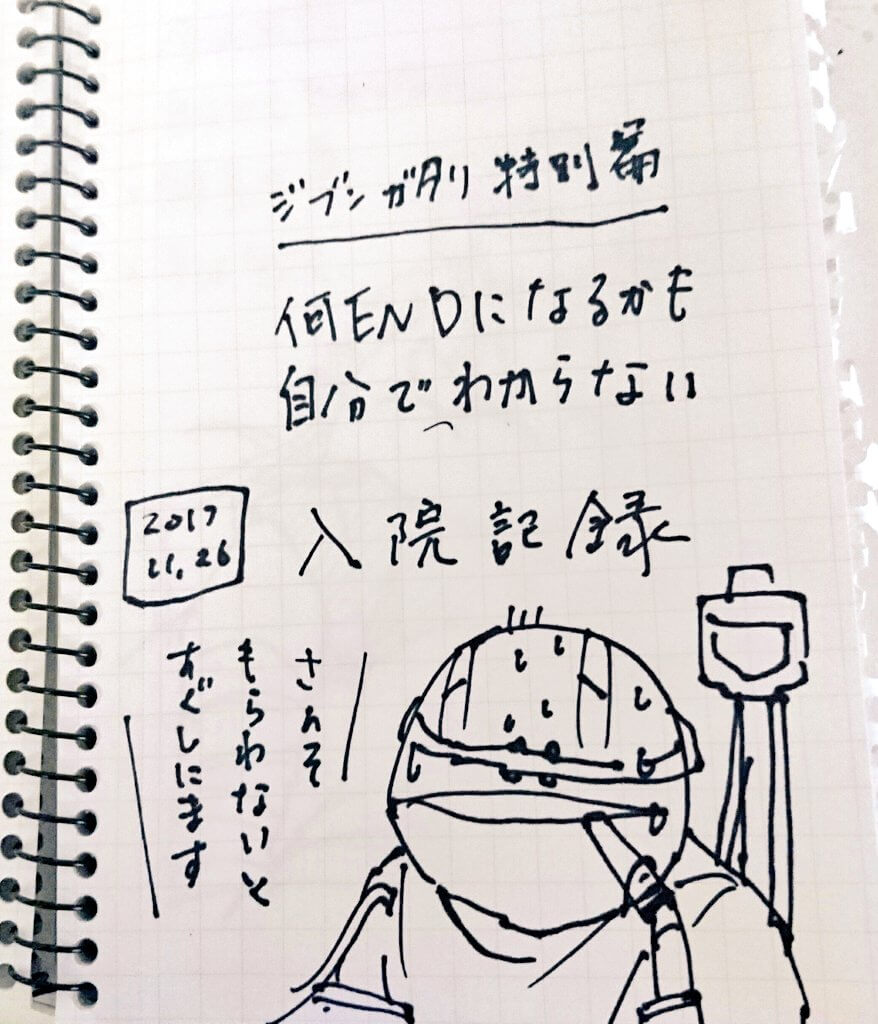 ジブンガタリ 特別篇
何ENDになるかも
自分でわからない
入院記録
2017
11.26
さんそ
もらわないと
すぐしにます